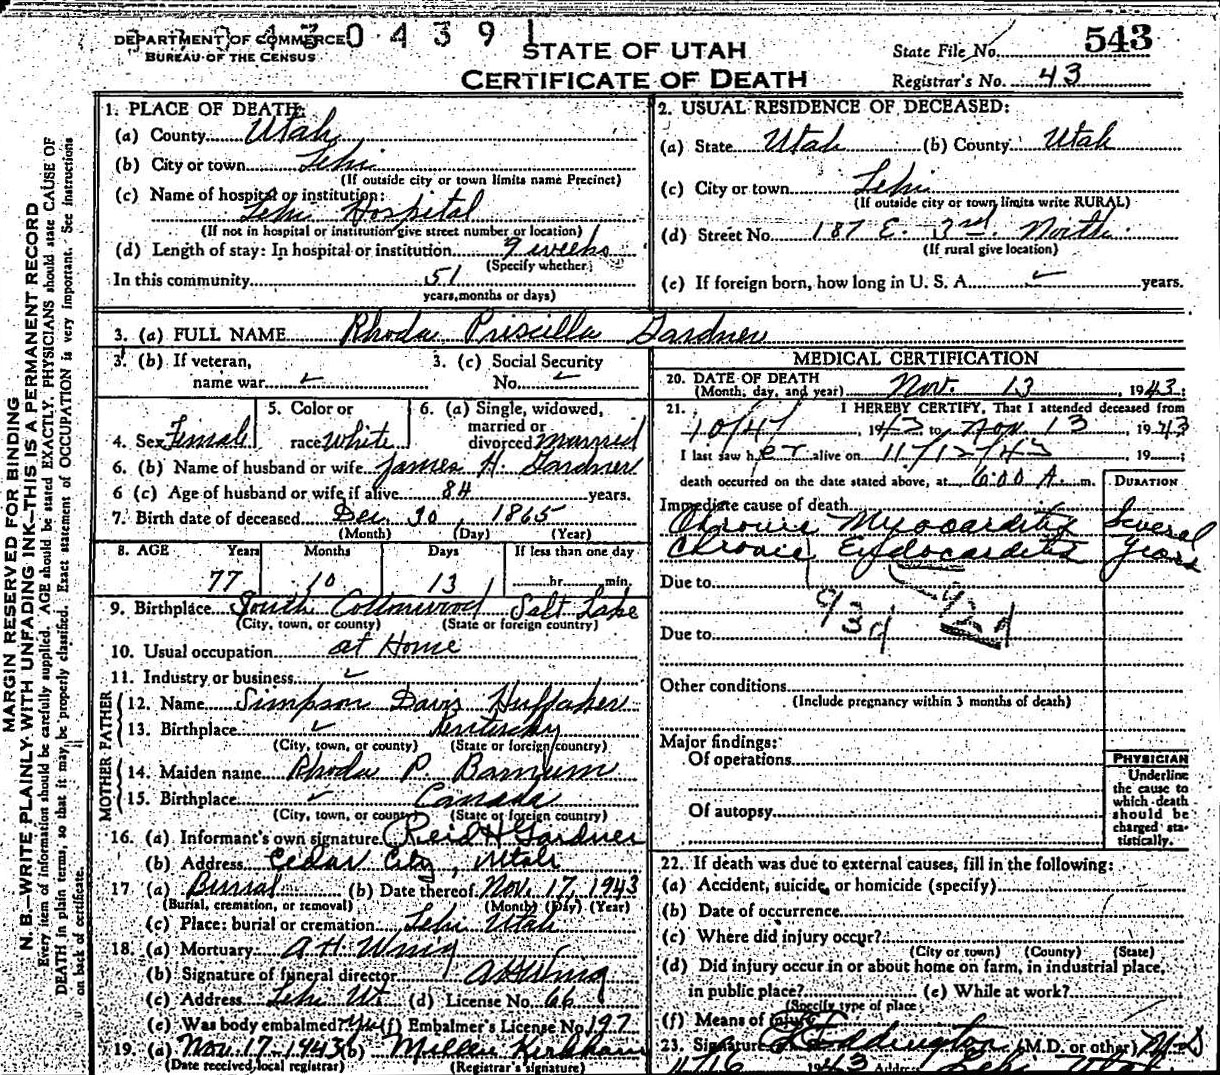 DEPARTMENT OF COMMERCE
BUREAU OF THE CENSUS
0 4 3 9 1
STATE OF UTAH
CERTIFICATE OF DEATH
State File No. 543
Registrar's No. 43
MARGIN RESERVED FOR BINDING
N. B.—WRITE PLAINLY, WITH UNFADING INK—THIS IS A PERMANENT RECORD
Every item of information should be carefully supplied. AGE should be stated EXACTLY. PHYSICIANS should state CAUSE OF
DEATH in plain terms, so that it may be properly classified. Exact statement of OCCUPATION is very important. See instructions
on back of certificate.
1. PLACE OF DEATH:
(a) County Utah
(b) City or town Lehi
(If outside city or town limits name Precinct)
(c) Name of hospital or institution:
Lehi Hospital
(If not in hospital or institution give street number or location)
(d) Length of stay: In hospital or institution 9 weeks
(Specify whether
In this community 51
years, months or days)
2. USUAL RESIDENCE OF DECEASED:
(a) State Utah (b) County Utah
(c) City or town Lehi
(If outside city or town limits write RURAL)
(d) Street No. 187 E. 3rd. North
(If rural give location)
(e) If foreign born, how long in U. S. A. years.
3. (a) FULL NAME Rhoda Priscilla Gardner
3. (b) If veteran,
name war
3. (c) Social Security
No.
4. Sex Female
5. Color or
race White
6. (a) Single, widowed,
married or
divorced married
6. (b) Name of husband or wife James H. Gardner
6 (c) Age of husband or wife if alive 84 years.
7. Birth date of deceased Dec. 30, 1865
(Month) (Day) (Year)
8. AGE Years Months Days If less than one day
77 10 13 hr. min.
9. Birthplace South Cottonwood Salt Lake
(City, town, or county) (State or foreign country)
10. Usual occupation at Home
11. Industry or business
FATHER
12. Name Simpson Davis Huffaker
13. Birthplace Kentucky
(City, town, or county) (State or foreign country)
MOTHER
14. Maiden name Rhoda P. Barnum
15. Birthplace Canada
(City, town, or county) (State or foreign country)
16. (a) Informant's own signature Reid H Gardner
(b) Address Cedar City, Utah
17 (a) Burial (b) Date thereof Nov. 17, 1943
(Burial, cremation, or removal) (Month) (Day) (Year)
(c) Place: burial or cremation Lehi Utah
18. (a) Mortuary A H Wing
(b) Signature of funeral director A H Wing
(c) Address Lehi Ut. (d) License No. 66
(e) Was body embalmed? Yes (f) Embalmer's License No. 197
19. (a) Nov. 17-1943 (b) Kirkham
(Date received local registrar) (Registrar's signature)
MEDICAL CERTIFICATION
20. DATE OF DEATH
(Month, day, and year) Nov. 13, 1943;
21. I HEREBY CERTIFY, That I attended deceased from
10/4/ 1943 to Nov. 13 1943
I last saw her alive on 11/12/43 19
death occurred on the date stated above, at 6:00 A. m.
DURATION
Immediate cause of death
Chronic Myocarditis Several
Chronic Endocarditis Years
Due to
93d
Due to
Other conditions
(Include pregnancy within 3 months of death)
Major findings:
Of operations
Of autopsy
PHYSICIAN
Underline
the cause to
which death
should be
charged sta-
tistically.
22. If death was due to external causes, fill in the following:
(a) Accident, suicide, or homicide (specify)
(b) Date of occurrence
(c) Where did injury occur?
(City or town) (County) (State)
(d) Did injury occur in or about home on farm, in industrial place,
in public place? (e) While at work?
(Specify type of place)
(f) Means of Injury
23. Signature Eddington (M.D. or other) M.D
1943 Address Lehi Utah